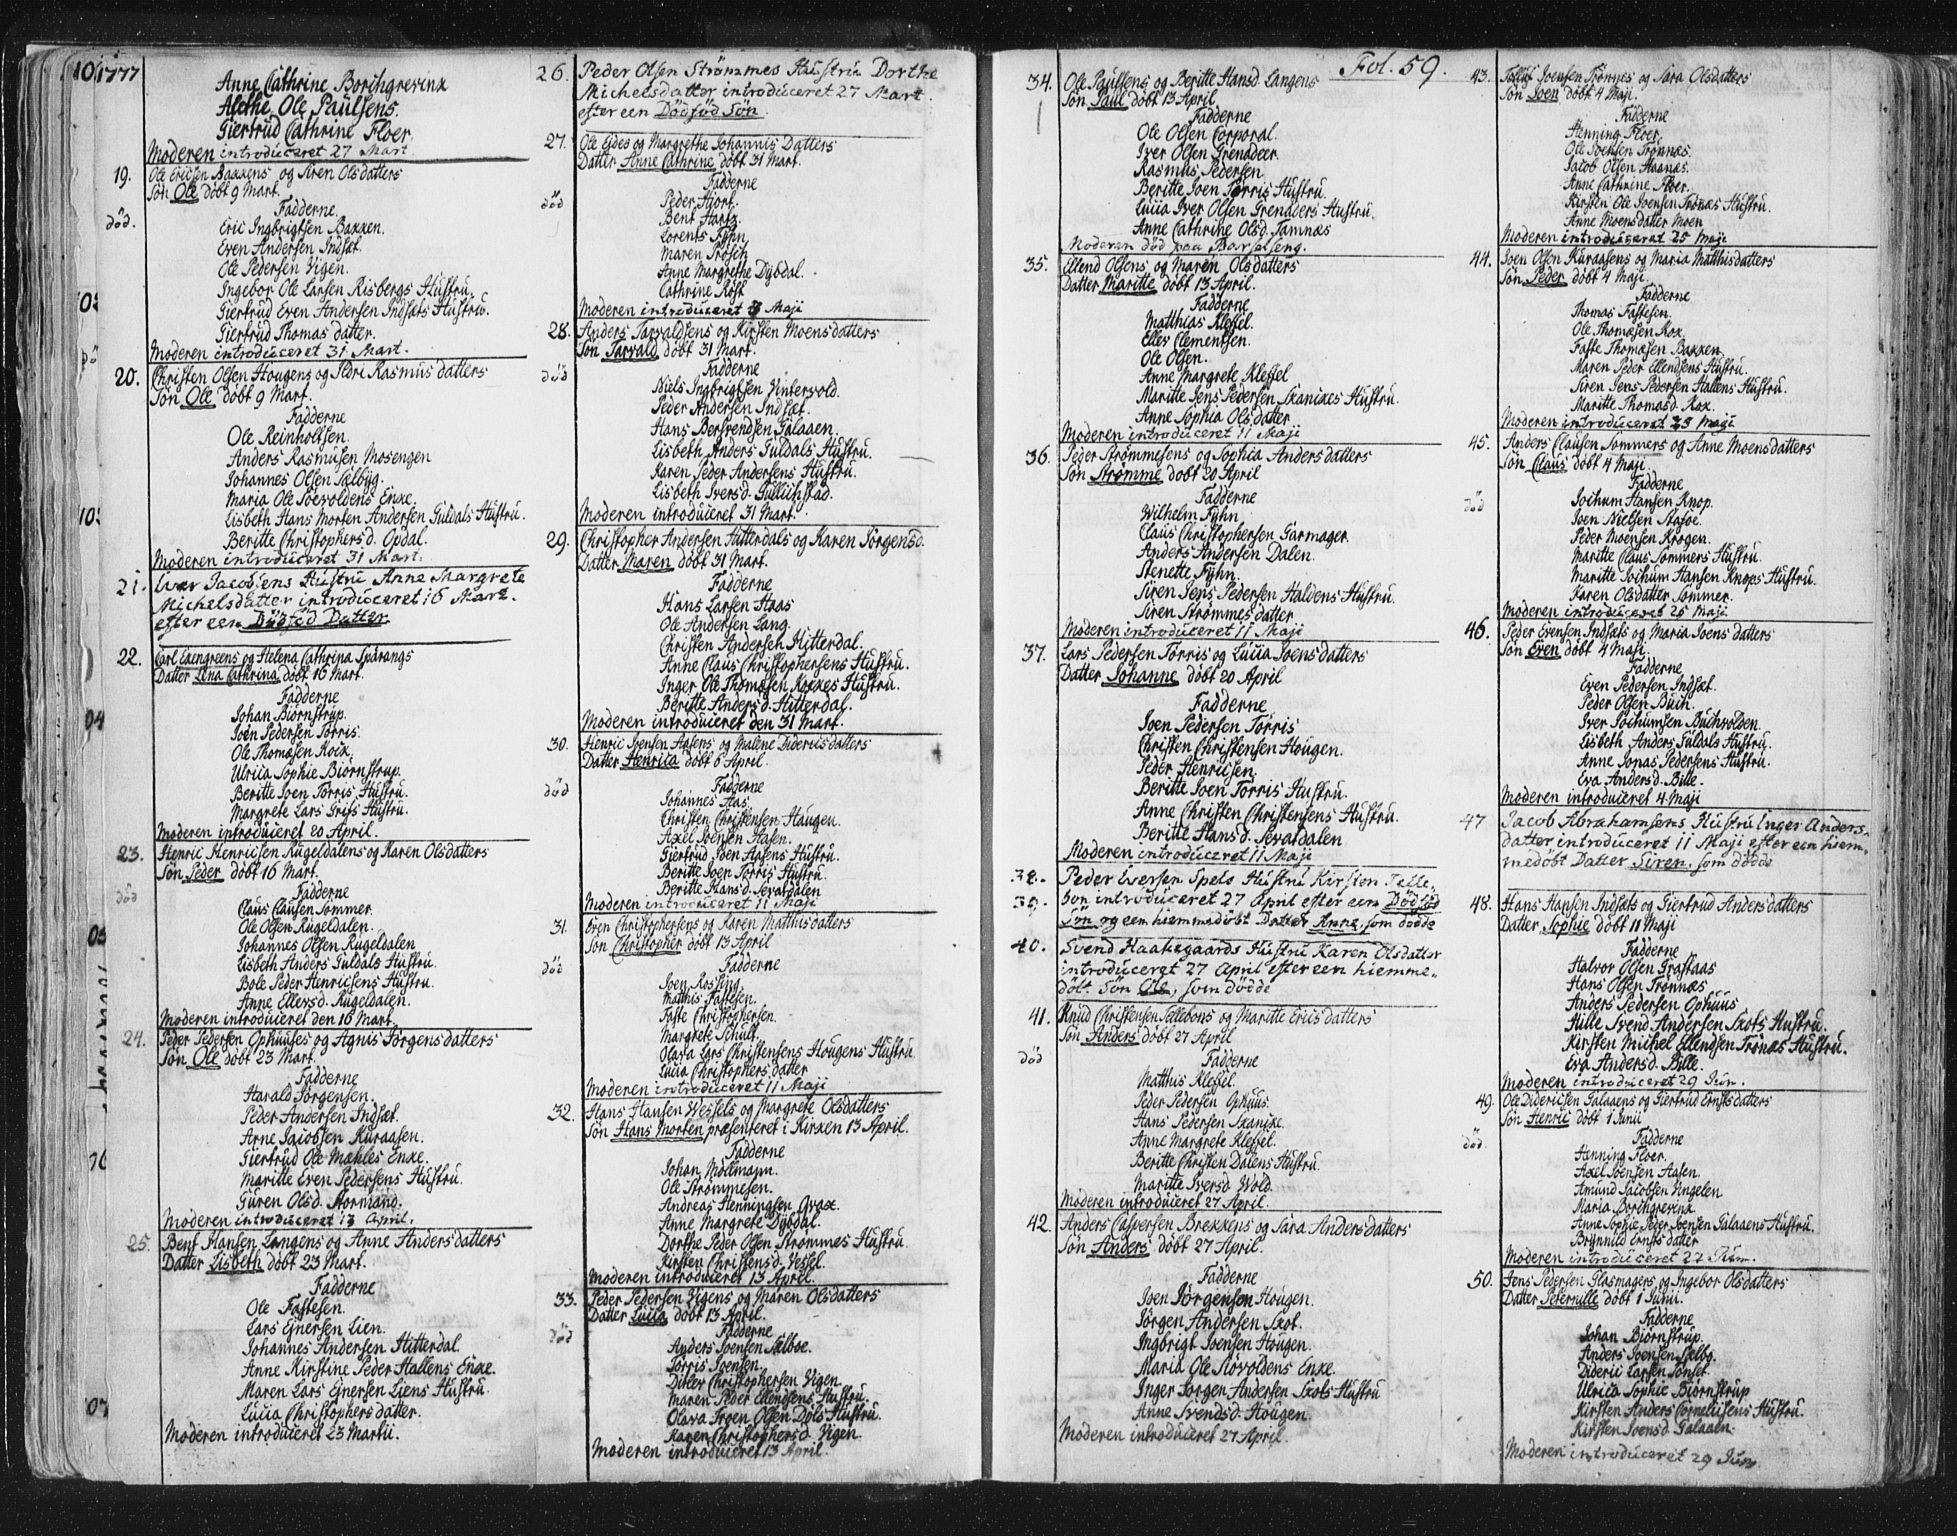 1777
Anne Cathrine Borchgrevinx
Alethe Ole Paulsens.
Giertrud Cathrine Floer
Moderen introduceret 27 Mart
19. Ole Ericsen Baxxens og Siren Olsdatters
Søn Ole døbt 9 Mart.
Fadderne
død.
Eric Ingbrigtsen Baxxen.
Even Andersen Indset
Ole Pedersen Vigen.
Ingebor Ole Larsen Risbergs Hustru.
Giertrud Even Andersen Indsets Hustru.
Giertrud Thomas datter.
Moderen introduceret 31 Mart.
20. Christen Olsen Hougens og Ildri Rasmus datters
Søn Ole døbt 9 Mart.
Fadderne
Ole Reinholtsen.
Anders Rasmusen Mosengen
Johannes Olsen Sælbyg.
Maria Ole Soevoldens Enxe.
Lisbeth Hans Morten Andersen Guldals Hustru.
Beritte Christophersd. Opdal.
Moderen introduceret 31 Mart.
21. Iver Jacobsens Hustru Anne Margrete
Michelsdatter introduceret 16 Mart.
efter een Dødfød Datter.
22. Carl Edengreens og Helena Cathrina Sparangs
Datter Lena Cathrina døbt 16 Mart.
Fadderne
Johan Biørnstrup.
Joen Pedersen Torris.
Ole Thomæsen Koix.
Ulrica Sophie Biørnstrup.
Beritte Joen Torris Hustru.
Margrete Lars Griis Hustru.
Moderen introduceret 20 April.
23. Henric Henricsen Rugeldalens og Karen Olsdatters
Søn Peder døbt 16 Mart.
Fadderne
død
Claus Clausen Sommer.
Ole Olsen Rugeldalen.
Johannes Olsen Rugeldalen
Lisbeth Anders Guldals Hustru.
Bole Peder Henricsens Hustru.
Anne Ellersd. Rugeldalen.
Moderen introduceret den 16 Mart.
24. Peder Pedersen Ophuuses og Agnis Jørgensdatters
Søn Ole døbt 23 Mart.
Fadderne
Harald Jørgensen.
Peder Andersen Indset.
Arne Jacobsen Kuraasen.
Giertrud Ole Mæhles Enxe.
Maritte Even Pedersens Hustru.
Guren Olsd. Normand.
Moderen introduceret 13 April.
25. Bent Hansen Langens og Anne Andersdatters
Datter Lisbeth døbt 23 Mart.
Fadderne
Ole Fastesen.
Lars Ejnersen Lien.
Johannes Andersen Hitterdal.
Anne Kirstine Peder Hallens Enxe.
Maren Lars Ejnersen Liens Hustru.
Lucia Christophersdatter.
Moderen introduceret 23 Martii.
26. Peder Olsen Strømmes Hustru Dorthe
Michelsdatter introduceret 27 Mart.
efter een Dødfød Søn.
27. Ole Eides og Margrethe Johannis Datters
Datter Anne Cathrine døbt 31 Mart.
Fadderne
død
Peder Hjort.
Bent Hartz.
Lorents Fyhn
Maren Trøsen
Anne Margrethe Dybdal.
Cathrine Røst
Moderen introduceret 8 Maji
28. Anders Tarvaldsens og Kirsten Moensdatters
Søn Tarvald døbt 31 Mart.
Fadderne
død
Niels Ingbrigtsen Vintervold.
Peder Andersen Indset.
Hans Bersvendsen Galaaen.
Lisbeth Anders Guldals Hustru.
Karen Peder Andersens Hustru.
Lisbeth Iversd. Gullichstad.
Moderen introduceret 31 Mart.
29. Christopher Andersen Hitterdals og Karen Jørgensd.
Datter Maren døbt 31 Mart.
Fadderne
Hans Larsen Haas
Ole Andersen Lang.
Christen Andersen Hitterdal.
Anne Claus Christophersens Hustru.
Inger Ole Thomæsen Koxes Hustru.
Beritte Andersd. Hitterdal.
Moderen introduceret den 31 Mart.
30. Henric Joensen Aasens og Malene Didericsdatters
Datter Henrica døbt 6 April.
Fadderne
død
Johannes Aas.
Christen Christensen Haugen.
Axel Joensen Aasen.
Giertrud Joen Aasens Hustru.
Beritte Joen Torris Hustru.
Beritte Hansd. Sevatdalen
Moderen introduceret 11 Maji
31. Oren Christophersens og Karen Matthisdatters
Søn Christopher døbt 13 April
Fadderne
død
Joen Rossing.
Matthis Fastesen.
Faste Christophersen.
Margrete Schult.
Olava Lars Christensens Hougens Hustru
Lucia Christophersdatter
Moderen introduceret 11 Maji
32. Hans Hansen Wessels og Margrete Olsdatters
Søn Hans Morten præsenteret i Kirxen 13 April.
Fadderne
Johan Møllmann.
Ole Strømmesen.
Andreas Henningsen Qvax.
Anne Margrete Dybdal.
Dorthe Peder Olsen Strømmes Hustru.
Kirsten Christensd. Vessel.
Moderen introduceret 13 April.
33. Peder Pedersen Vigens og Maren Olsdatters
Datter Lucia døbt 13 April.
Fadderne
død
Anders Joensen Sælboe.
Torris Joensen.
Ditlev Christophersen Vigen.
Maren Peder Ellendsens Hustru.
Olava Trgen Olsen Døls Hustru.
Karen Christophersd. Vigen.
Moderen introduceret 13 April.
Fol. 59.
34. Ole Paulsens og Beritte Hansd. Langens
Søn Paul døbt 13 April
Fadderne
Ole Olsen Corporal.
Iver Olsen Grenadeer.
Rasmus Pedersen
Beritte Joen Torris Hustru.
Lucia Iver Olsen Grenaders Hustru.
Anne Cathrine Olsd. Tamnæs
Moderen død paa Barselseng.
35. Ellend Olsens og Maren Olsdatters
Datter Maritte døbt 13 April.
Fadderne
Matthias Kleffel.
Eller Clementsen.
Ole Olsen.
Anne Margrete Kleffel
Maritte Jens Pedersen Skanixes Hustru.
Anne Sophia Olsdatter
Moderen introduceret 11 Maji
36. Peder Strømmesens og Sophia Andersdatters
Søn Strømme døbt 20 April
Fadderne
Wilhelm Fyhn.
Claus Christophersen Garmager
Anders Andersen Dalen.
Stenette Fyhn.
Siren Jens Pedersen Haldens Hustru.
Siren Strømmesdatter
Moderen introduceret 11 Maji
37. Lars Pedersen Torris og Lucia Joensdatters
Datter Johanne døbt 20 April
Fadderne
Joen Pedersen Torris
Christen Christensen Hougen.
Peder Henricsen.
Beritte Joen Torris Hustru.
Anne Christen Christensens Hustru.
Beritte Hansd. Sevatdalen
Moderen introduceret 11 Maji
38. Peder Iversen Spels Hustru Kirsten Telle-
39. bon introduceret 27 April efter een Dødfød
Søn og een hiemmedøbt Datter Anne, som døde
40. Svend Haakegaards Hustru Karen Olsdatter
introduceret 27 April efter een hiemme-
døbt Søn Ole, som døde
41. Knud Christensen Tellebons og Maritte Ericsdatters
Søn Anders døbt 27 April
Fadderne
død
Matthis Kleffel.
Peder Pedersen Ophuus.
Hans Pedersen Skanixe.
Anne Margrete Kleffel.
Beritte Christen Dalens Hustru.
Maritte Iversd. Wold.
Moderen introduceret 27 April.
42. Anders Caspersen Brexxens og Sara Andersdatters
Søn Anders døbt 27 April.
Fadderne
Joen Jørgensen Hougen.
Jørgen Andersen Skot.
Ingbrigt Joensen Hougen.
Maria Ole Stovoldens Enxe.
Inger Jørgen Andersen Skots Hustru
Anne Svendsd. Hougen.
Moderen introduceret 27 April.
43. Tollef Joensen Trønnes og Sara Olsdatters
Søn Joen døbt 4 Maji.
Fadderne
Henning Floer.
Ole Joensen Trønnæs.
Jacob Olsen Haanæs.
Anne Cathrine Floer.
Kirsten Ole Joensen Trønæs Hustru.
Anne Moensdatter Moen
Moderen introduceret 25 Maji
44. Joen Olsen Kuraasens og Maria Matthisdatters
Søn Peder døbt 4 Maji.
Fadderne
Thomas Fastesen.
Ole Thomæsen Kox.
Faste Thomæsen Baxxen
Maren Peder Ellendsens Hustru.
Siren Jens Pedersen Hallens Hustru.
Maritte Thomasd. Kox.
Moderen introduceret 25 Maji
45. Anders Clausen Sommers og Anne Moensdatters
Søn Claus døbt 4 Maji.
Fadderne
død
Jochum Hansen Knop.
Joen Nielsen Stafoe.
Peder Moensen Krogen.
Maritte Claus Sommers Hustru.
Maritte Jochum Hansen Knops Hustru.
Karen Olsdatter Sommer.
Moderen introduceret 25 Maji
46. Peder Evensen Indsets og Maria Joens datters
Søn Even døbt 4 Maji.
Fadderne
Even Pedersen Indset.
Peder Olsen Buch.
Iver Jochumsen Buchvolden.
Lisbeth Anders Guldals Hustru.
Anne Jonas Pedersens Hustru.
Eva Andersd. Bille.
Moderen introduceret 4 Maji
47 Jacob Abrahamsens Hustru Inger Anders-
datter introduceret 11 Maji efter een hiem-
medøbt Datter Siren, som døde
48. Hans Hansen Indsets og Giertrud Andersdatters
Datter Sophie døbt 11 Maji
Fadderne
Halvor Olsen Graftaas
Hans Olsen Trønnæs
Anders Pedersen Ophuus
Hille Svend Andersen Skots Hustru.
Kirsten Michel Ellendsen Trønæs Hustru.
Eva Andersd. Bille.
Moderen introduceret 29 Jun.
49 Ole Didericsen Galaaens og Giertrud Ernstsdatters
Søn Henric døbt 1 Junii
Fadderne
død.
Henning Floer.
Axel Joensen Aasen.
Amund Jacobsen Engelen
Maria Borchgrevinx
Anne Sophie Peder Joensen Galaaens Hustru.
Brynnild Ernstsdatter
Moderen introduceret 22 Jun.
50. Jens Pedersen Glasmagers og Ingebor Olsdatters
Datter Peternille døbt 1 Junii.
Fadderne
Johan Biørnstrup.
Anders Joensen Sælbg.
Dideric Larsen Sonset.
Ulrica Sophie Biørnstrup
Kirsten Anders Corneliusens Hustru.
Kirsten Joensd. Galaaen.
Moderen introduceret 29 Jun